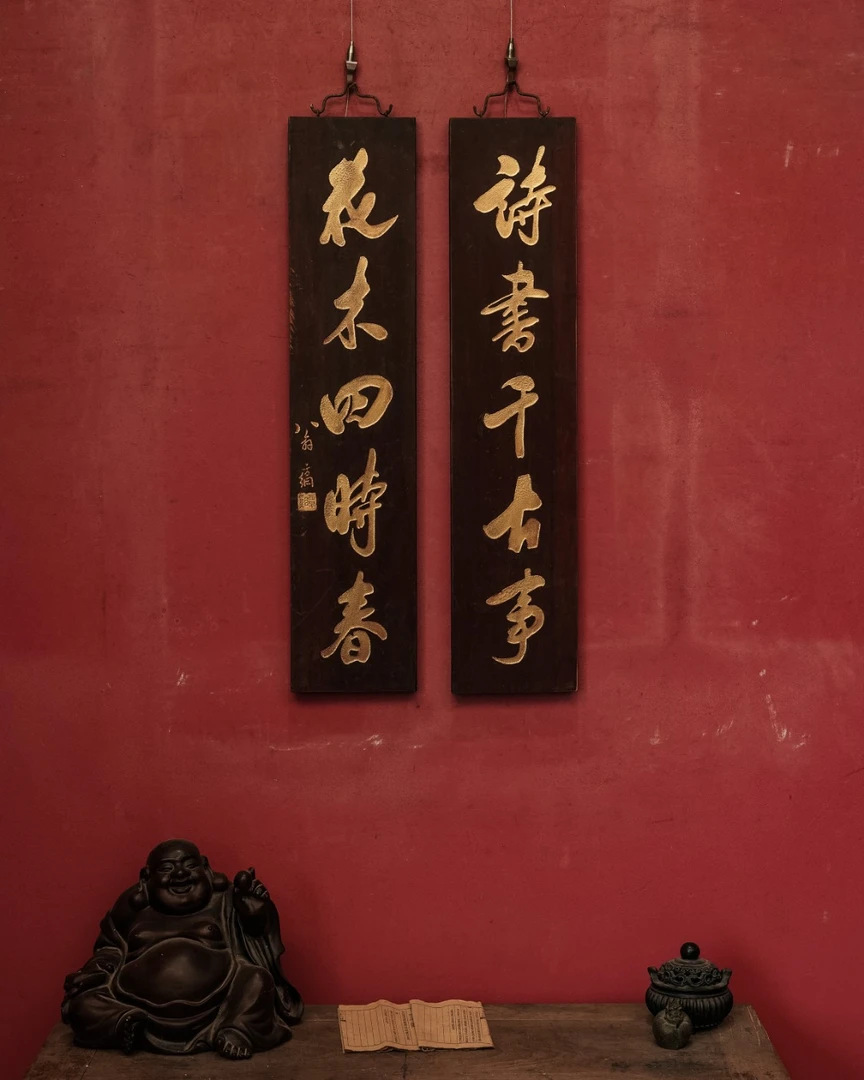 詩書千古事
花木四時春
八翁